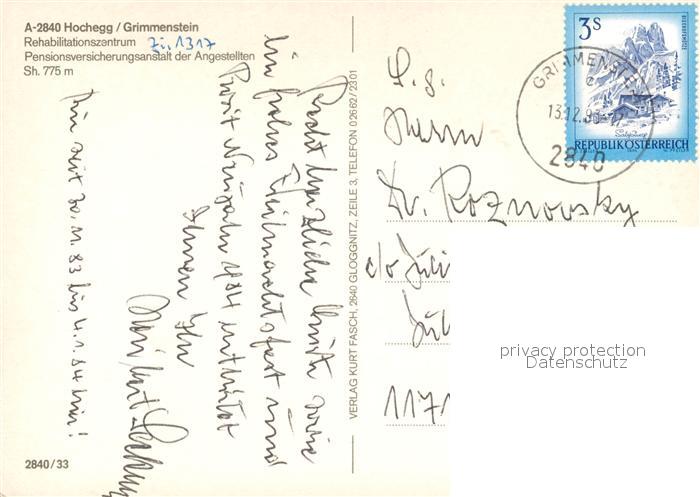 A-2840 Hochegg / Grimmenstein
Rehabilitationszentrum Zi. 1317
Pensionsversicherungsanstalt der Angestellten
Sh. 775 m
Recht herzliche Grüße sowie
ein frohes Weihnachtsfest und
Prosit Neujahr 1984 entbietet
Ihnen Ihr
Bin seit 30.11.83 bis 4.1.84 hier!
2840/33
VERLAG KURT FASCH, 2640 GLOGGNITZ, ZEILE 3, TELEFON 02662/2301
3S
REPUBLIK ÖSTERREICH
GRIMMENST
2840
S.g.
Herrn
Dr. Roznovsky
c/o
1171
privacy protection
Datenschutz